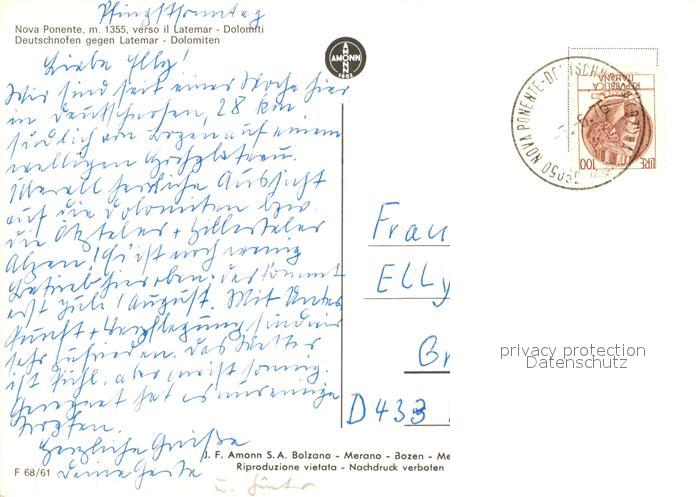 Pfingstsonntag
Nova Ponente, m. 1355, verso il Latemar - Dolomiti
Deutschnofen gegen Latemar - Dolomiten
Liebe Elly!
Wir sind seit einer Woche hier
in Deutschnofen, 28 km
südlich von Bozen auf einem
welligen Hochplateau.
Überall herrliche Aussicht
auf die Dolomiten bzw.
die Ötztaler + Zillertaler
Alpen. Es ist noch wenig
Betrieb hier oben; das kommt
erst Juli/August. Mit Unter
kunft + Verpflegung sind wir
sehr zufrieden. Das Wetter
ist kühl, aber meist sonnig.
Geregnet hat es nur einige
Tropfen.
Herzliche Grüße
Deine
u. Günter
AMONN
AMONN
1802
39050 NOVA PONENTE-DEUTSCHNOFEN
6.76
REPUBBLICA
ITALIANA
LIRE 100
Frau
Elly
Gr
D433
privacy protection
Datenschutz
J. F. Amonn S.A. Bolzano - Merano - Bozen - Me
Riproduzione vietata - Nachdruck verboten
F 68/61